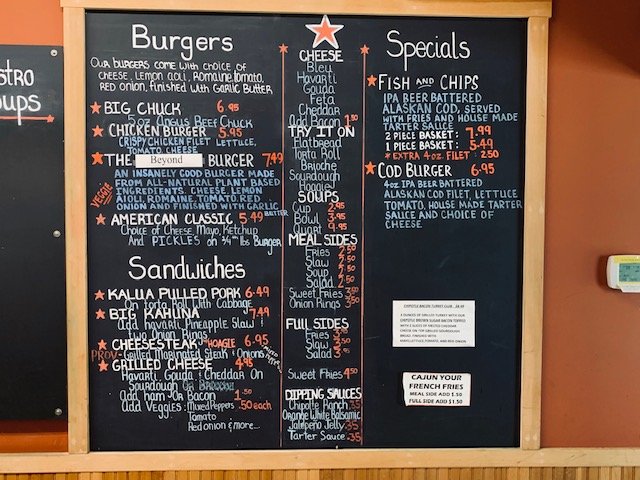 stro
oups
Burgers
Our burgers come with choice of
cheese, Lemon aoli, Romaine, tomato,
red onion, finished with Garlic Butter
BIG CHUCK 6.95
5oz Angus Beef Chuck
CHICKEN BURGER 5.95
CRISPY CHICKEN FILET LETTUCE,
TOMATO CHEESE
THE Beyond BURGER 7.49
VEGGIE
AN INSANELY GOOD BURGER MADE
FROM ALL-NATURAL PLANT BASED
INGREDIENTS. CHEESE, LEMON
AIOLI, ROMAINE, TOMATO, RED
ONION AND FINISHED WITH GARLIC BUTTER
AMERICAN CLASSIC 5.49
Choice of Cheese, Mayo, Ketchup
And PICKLES on 1/4 lbs Burger
Sandwiches
KALUA PULLED PORK 6.49
On torta Roll With Cabbage
BIG KAHUNA 7.49
Add havarti, Pineapple Slaw &
two Onion Rings
CHEESESTEAK HOAGIE 6.95
PROV-Grilled Marinated Steak & Onions
GRILLED CHEESE 4.95
Havarti, Gouda & Cheddar On
Sourdough
Add ham -Or Bacon 1.50
Add Veggies: Mixed Peppers .50 each
Tomato
Red onion & more...
CHEESE
Bleu
Havarti
Gouda
Feta
Cheddar
Add Bacon 1.50
TRY IT ON
Flatbread
Torta Roll
Brioche
Sourdough
Hoagie
SOUPS
Cup 2.95
Bowl 3.95
Quart 9.95
MEAL SIDES
Fries 2.50
Slaw 2.50
Soup 2.50
Salad 2.50
Sweet Fries 3.50
Onion Rings 3.50
FULL SIDES
Fries
Slaw
Salad
Sweet Fries 4.50
DIPPING SAUCES
Chipolte Ranch .35
Orange White Balsamic
Jalapeño Jelly .35
Tarter Sauce .35
Specials
FISH AND CHIPS
IPA BEER BATTERED
ALASKAN COD, SERVED
WITH FRIES AND HOUSE MADE
TARTER SAUCE
2 PIECE BASKET: 7.99
1 PIECE BASKET: 5.49
* EXTRA 4 oz. FILET : 2.50
COD BURGER 6.95
4oz IPA BEER BATTERED
ALASKAN COD FILET, LETTUCE
TOMATO, HOUSE MADE TARTER
SAUCE AND CHOICE OF
CHEESE
CHIPOTLE BACON TURKEY CLUB - $8.49
4 OUNCES OF GRILLED TURKEY WITH OUR
CHIPOTLE BROWN SUGAR BACON TOPPED
WITH 2 SLICES OF MELTED CHEDDAR
CHEESE ON TOP GRILLED SOURDOUGH
BREAD. FINISHED WITH
MAYO, LETTUCE, TOMATO, AND RED ONION
CAJUN YOUR
FRENCH FRIES
MEAL SIDE ADD $.50
FULL SIDE ADD $1.50